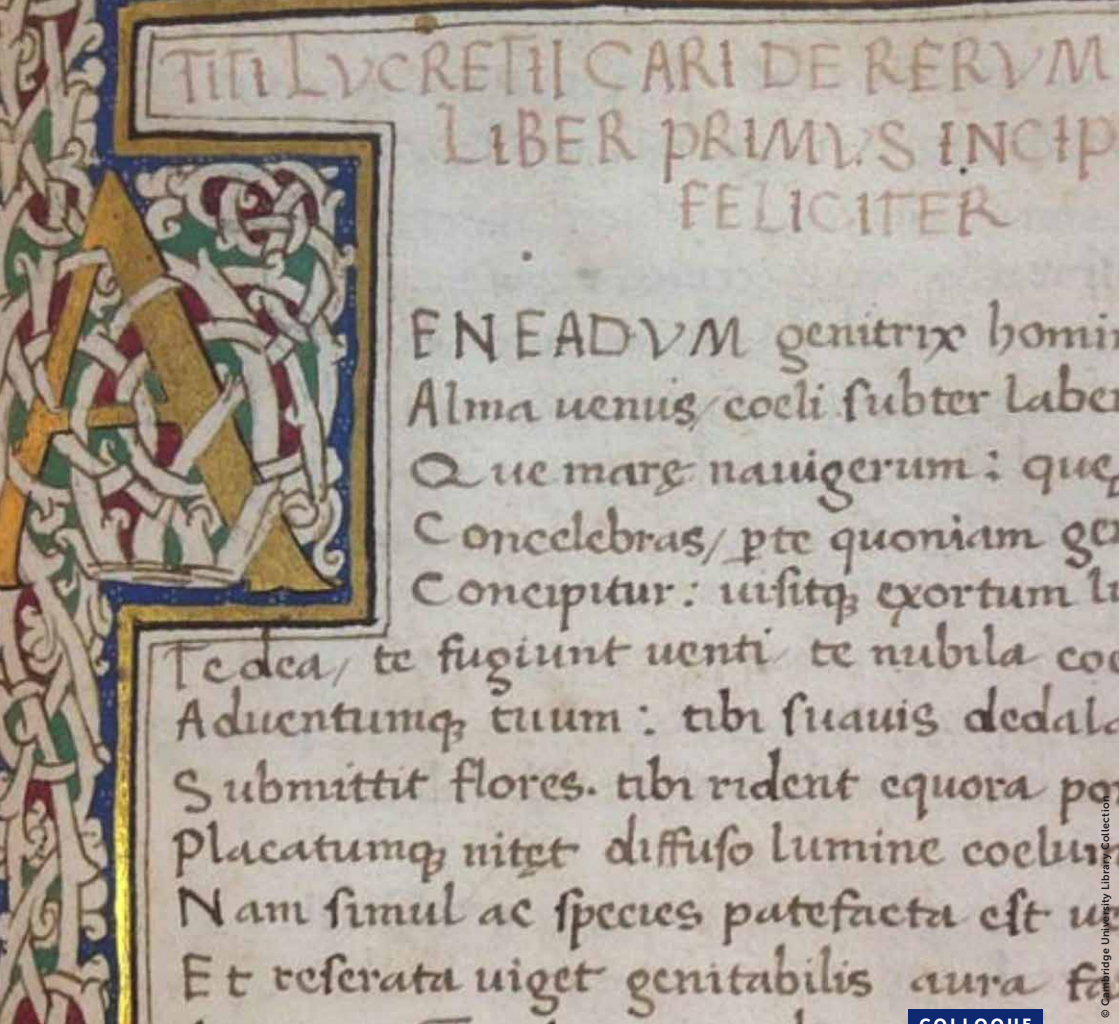 TITI LVCRETII CARI DE RERVM
LIBER PRIMVS INCIP
FELICITER
AENEADVM genitrix homi
Alma uenus/ coeli subter labe
Que marę nauigerum : quę
Concelebras/ ꝑte quoniam ge
Concipitur : uisitqꝫ exortum l
Te dea/ te fugiunt uenti/ te nubila coe
Aduentumqꝫ tuum : tibi suauis dedala
Submittit flores. tibi rident equora po
Placatumqꝫ nitęt diffuso lumine coelu
Nam simul ac species patefacta est u
Et reserata uiget genitabilis aura fa
© Cambridge University Library Collection
COLLOQUE